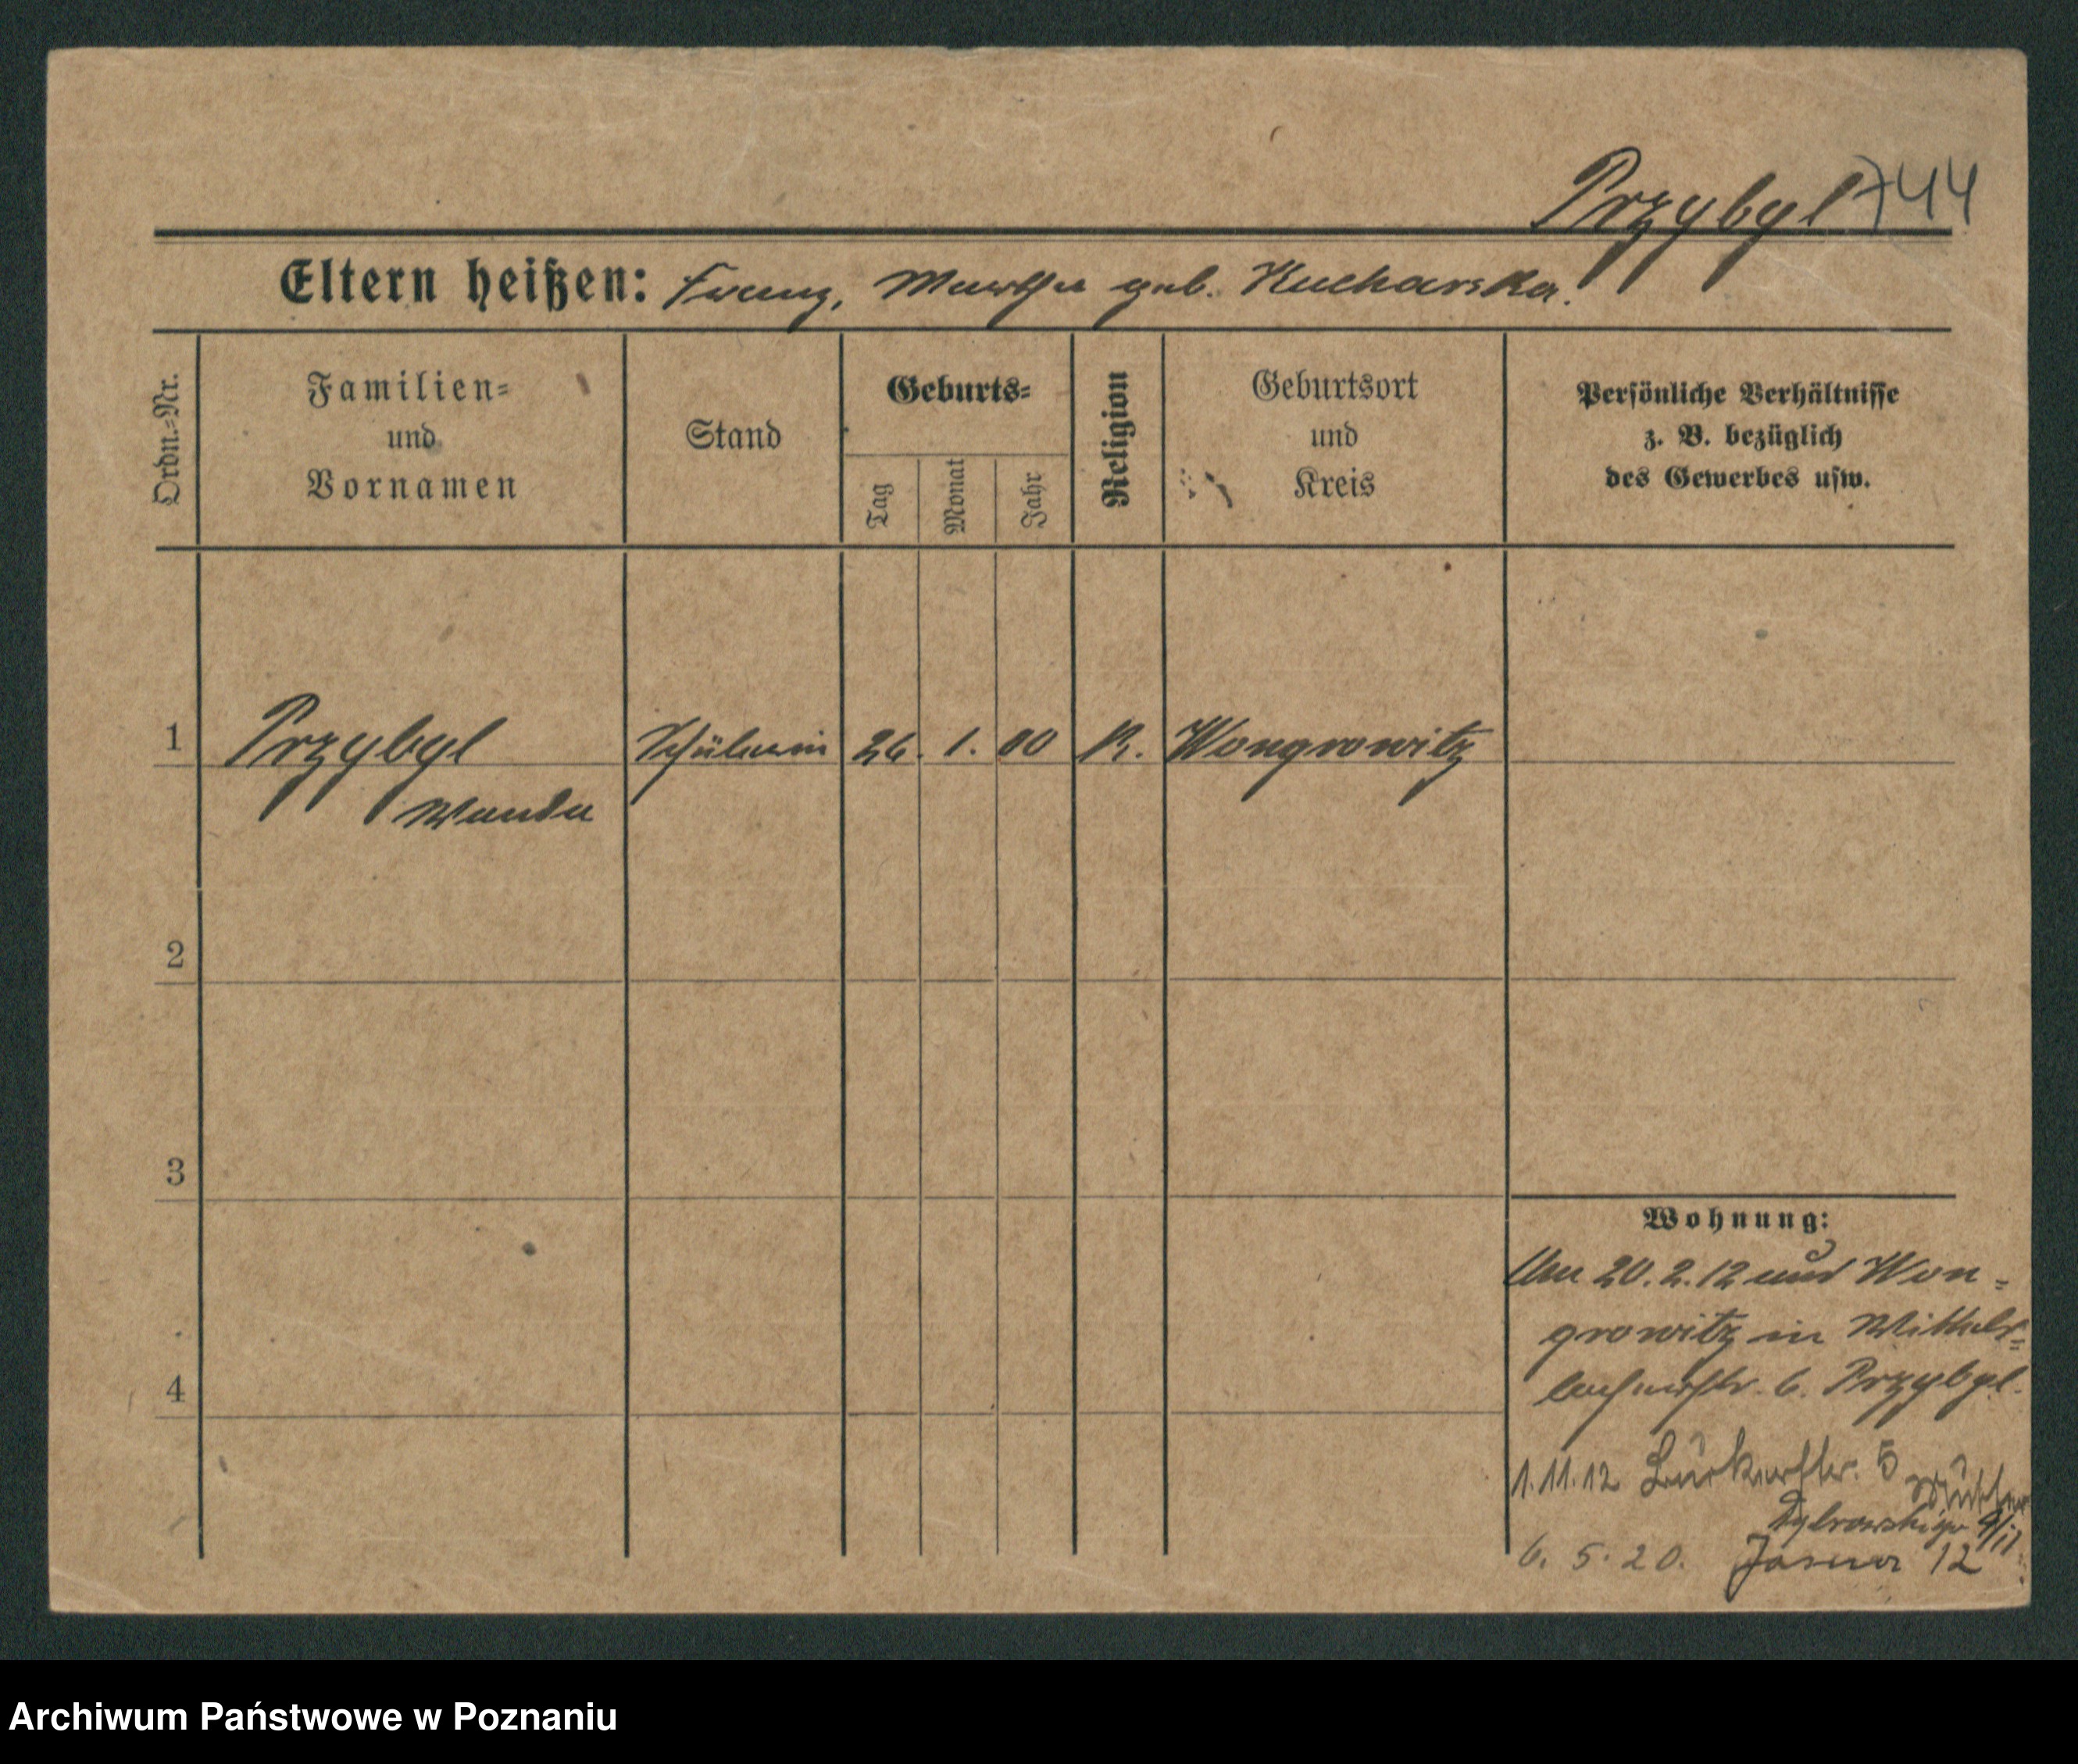 Przybyl 744
Eltern heißen: Franz, Martha geb. Kucharska.
Ordn.=Nr.
Familien=
und
Vornamen
Stand
Geburts=
Tag
Monat
Jahr
Religion
Geburtsort
und
Kreis
Persönliche Verhältnisse
z. B. bezüglich
des Gewerbes usw.
1 Przybyl Schülerin 26. 1. 00 K. Wongrowitz
Wanda
2
3
4
Wohnung:
20.2.12 Won=
growitz in Mittels=
bacherstr. 6. Przybyl.
1.11.12 5 Mutter
6. 5. 20. 12
Archiwum Państwowe w Poznaniu